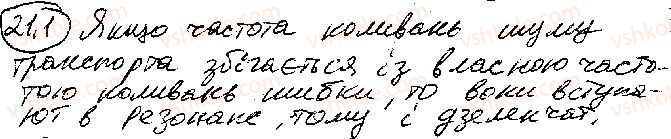 21.1 Якщо частота коливань шуму
транспорта збігається із власною часто-
тою коливань шибки, то вони вступа-
ют в резонанс, тому і дзеленчат.